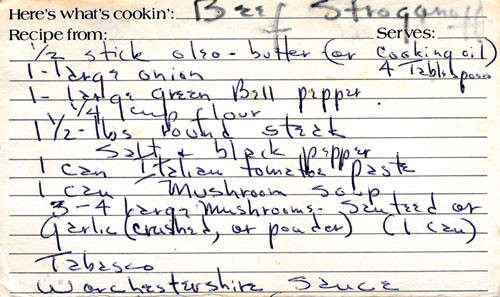 Here's what's cookin': Beef Stroganoff
Recipe from: Serves:
1/2 stick oleo-butter (or cooking oil)
4 Tablespoons
1-large onion
1-large green Bell pepper
1/4 cup flour
1 1/2-lbs round steak
Salt & black pepper
1 can Italian tomatoe paste
1 can Mushroom Soup
3-4 large mushrooms- Sauteed or
Garlic (crushed, or powder) (1 can)
Tabasco
Worchestershire Sauce